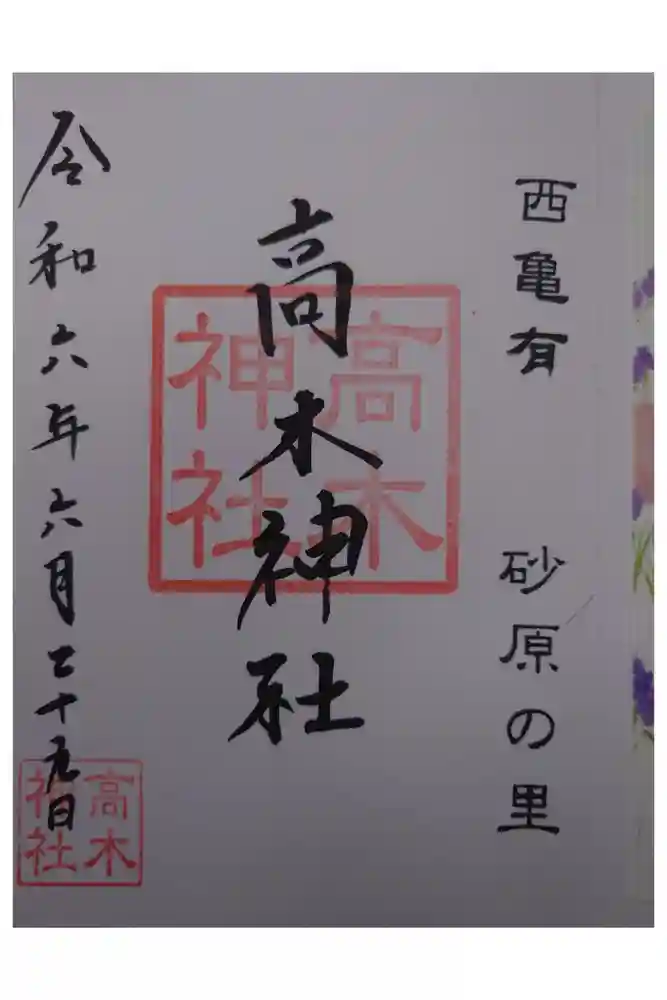 西亀有 砂原の里
高木神社
高木神社
令和六年六月二十九日
高木神社